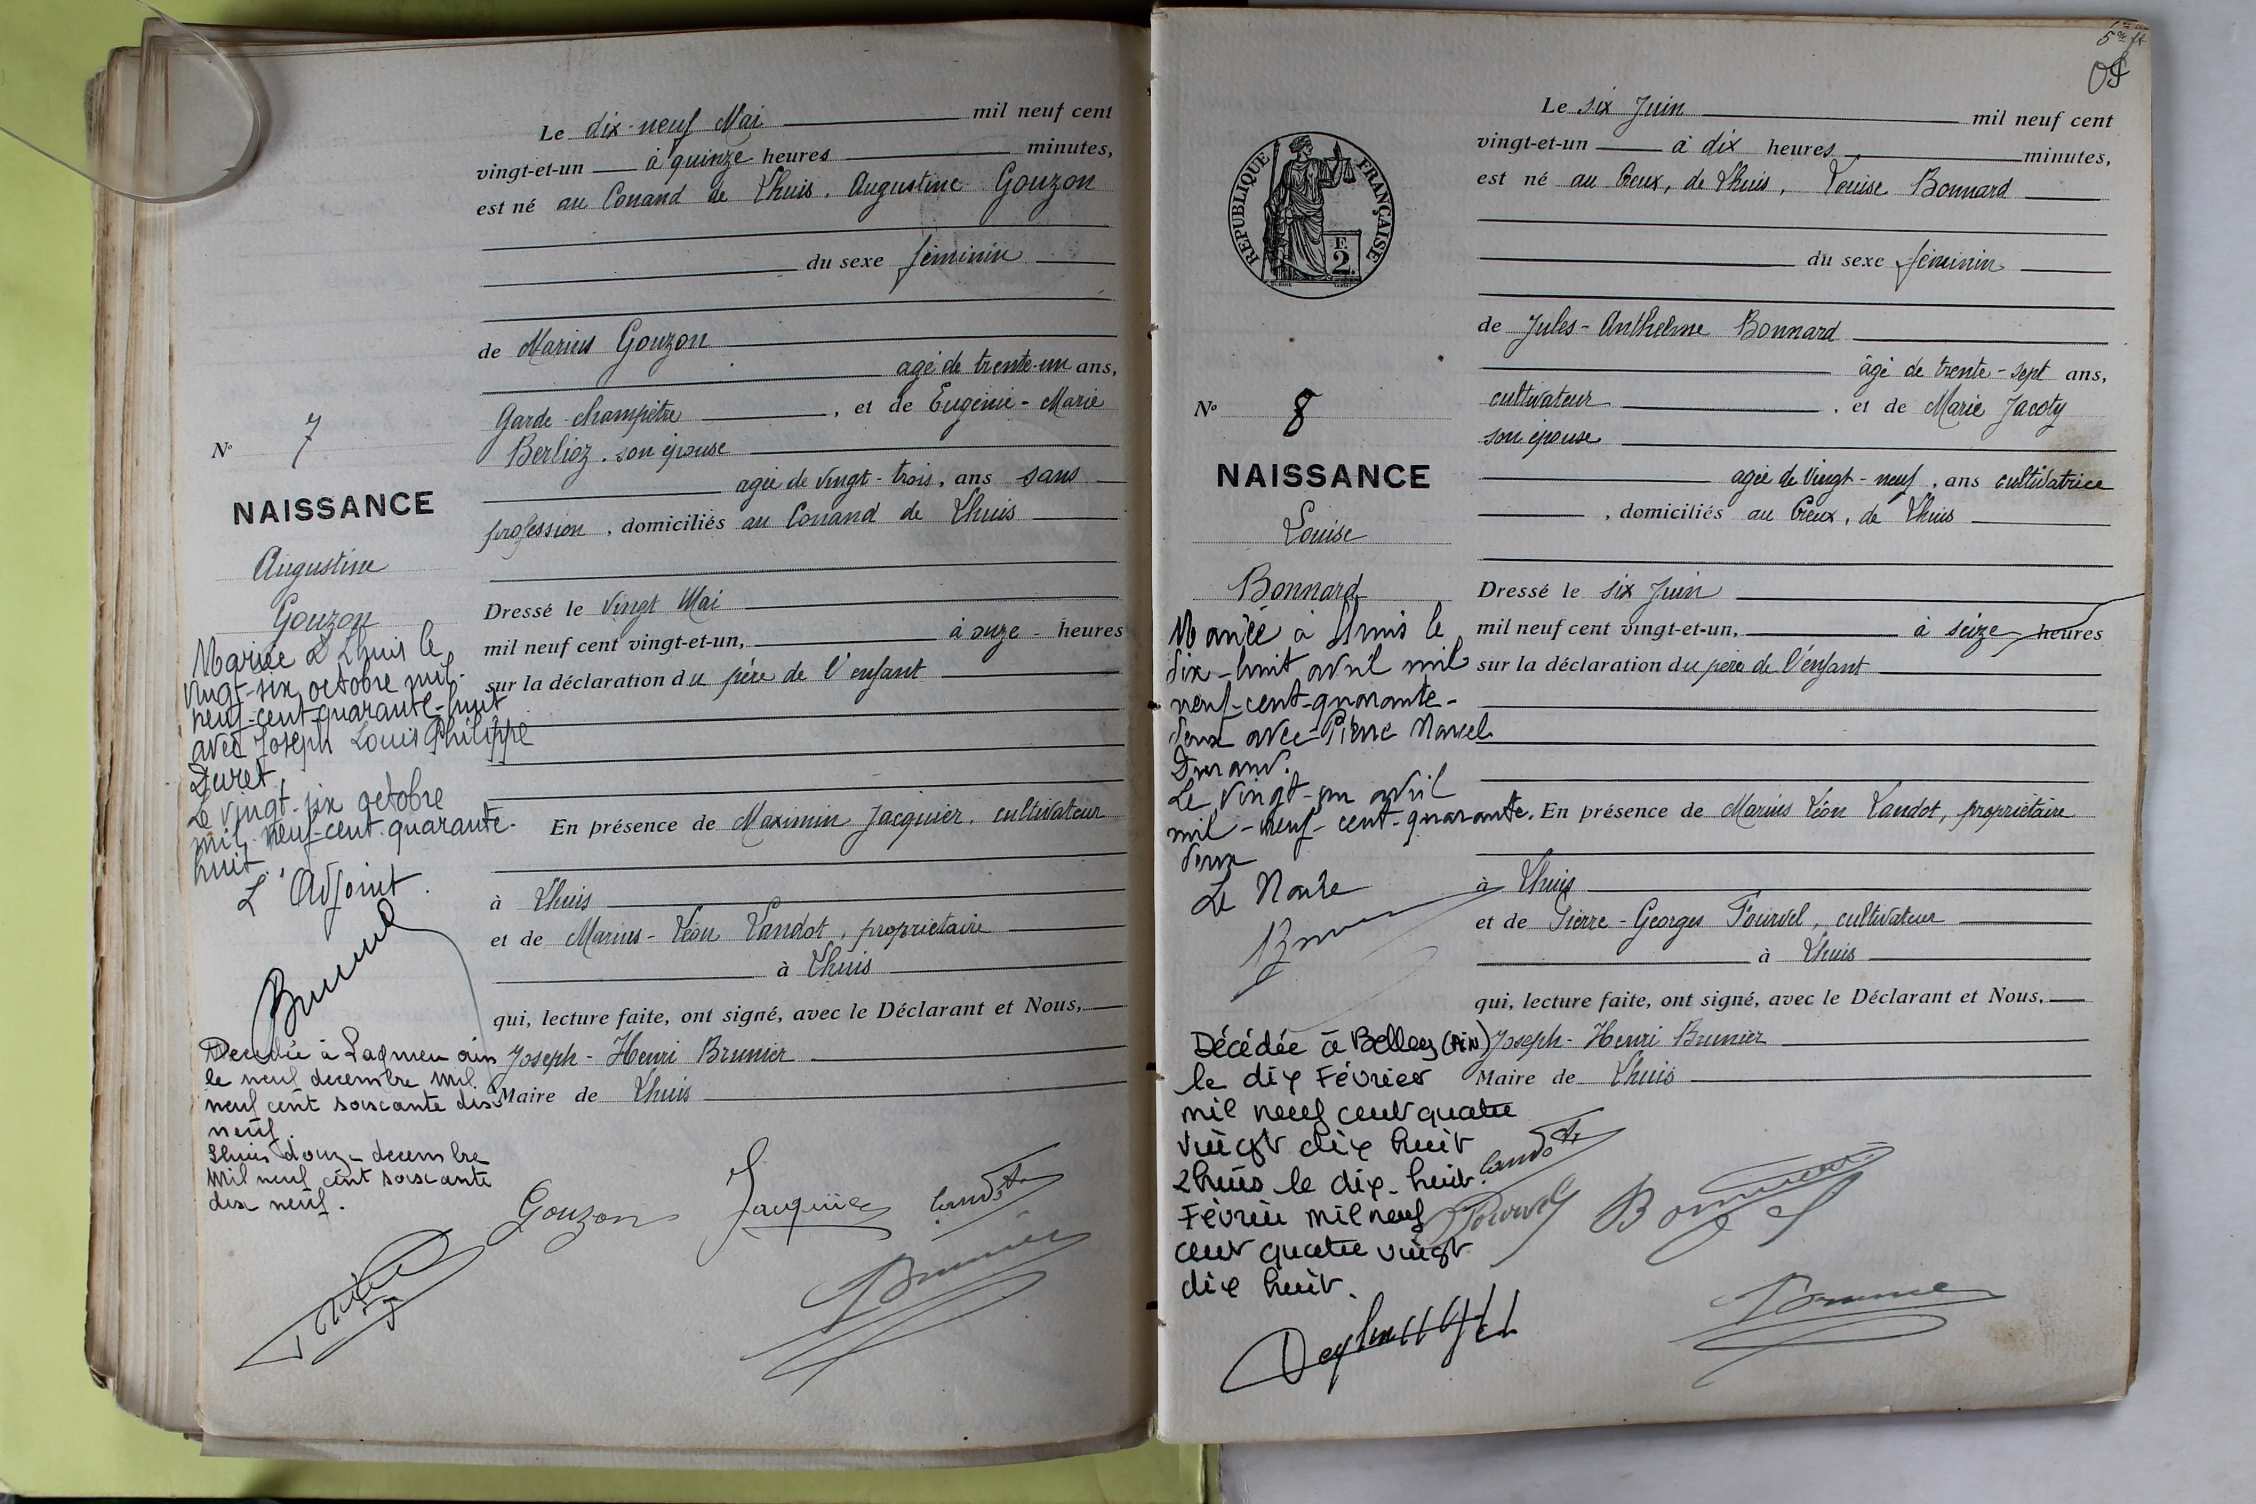 Le dix-neuf Mai mil neuf cent
vingt-et-un à quinze heures minutes,
est né au Conand de Lhuis, Augustine Gouzon
du sexe féminin
de Marius Gouzon
agé de trente-un ans,
Garde-champêtre, et de Eugénie-Marie
Berlioz, son épouse
agée de vingt-trois, ans sans
profession, domiciliés au Conand de Lhuis
Dressé le vingt Mai
mil neuf cent vingt-et-un, à onze heures
sur la déclaration du père de l'enfant
En présence de Maximin Jacquier, cultivateur
à Lhuis
et de Marius-Léon Landot, propriétaire
à Lhuis
qui, lecture faite, ont signé, avec le Déclarant et Nous,
Joseph-Henri Brunier
Maire de Lhuis
Gouzon Jacquier Landot
Brunier
No 7
NAISSANCE
Augustine
Gouzon
Mariée à Lhuis le
vingt-six octobre mil-
neuf-cent-quarante-huit
avec Joseph Louis Philippe
Duret.
Le vingt-six octobre
mil-neuf-cent-quarante-
huit.
L'Adjoint.
Decedée à Lagnieu ain
le neuf decembre mil
neuf cent soixante dix
neuf.
Lhuis douze decembre
mil neuf cent soixante
dix neuf.
5me ft
Le six Juin mil neuf cent
vingt-et-un à dix heures minutes,
est né au Creux, de Lhuis, Louise Bonnard
du sexe féminin
de Jules-Anthelme Bonnard
âgé de trente-sept ans,
cultivateur, et de Marie Jacoty
son épouse
agée de vingt-neuf, ans cultivatrice
, domiciliés au Creux, de Lhuis
Dressé le six Juin
mil neuf cent vingt-et-un, à seize heures
sur la déclaration du père de l'enfant
En présence de Marius Léon Landot, propriétaire
à Lhuis
et de Pierre-Georges Tourvel, cultivateur
à Lhuis
qui, lecture faite, ont signé, avec le Déclarant et Nous,
Joseph-Henri Brunier
Maire de Lhuis
Landot
Bonnard
Brunier
RÉPUBLIQUE FRANÇAISE
F.
2.
No 8
NAISSANCE
Louise
Bonnard
Mariée à Lhuis le
dix-huit avril mil
neuf-cent-quarante-
deux avec Pierre Marcel
Durand.
Le vingt-un avril
mil-neuf-cent-quarante.
deux
Le Maire
Décédée à Belley (AIN)
le dix Février
mil neuf cent quatre
vingt dix huit
Lhuis le dix-huit
Février mil neuf
cent quatre vingt
dix huit.